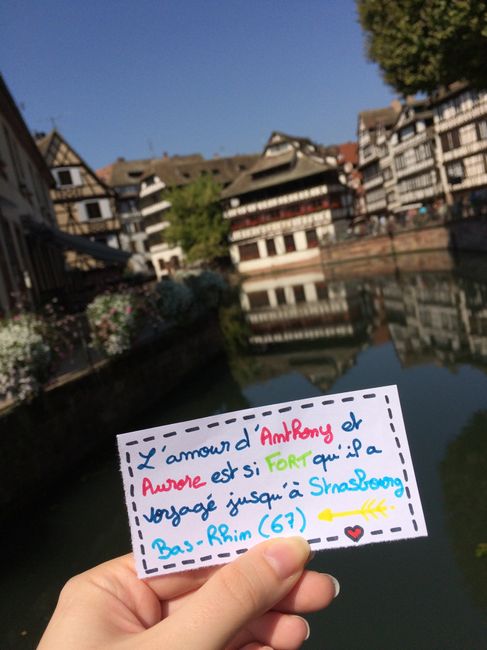 L'amour d'Anthony et
Aurore est si FORT qu'il a
voyagé jusqu'à Strasbourg
Bas-Rhin (67)